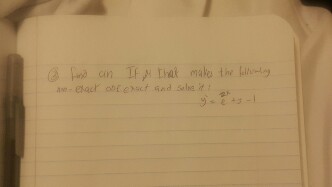 ② find an If μ that make the following
non-exact ode exact and solve it:
y' = e²ˣ + y - 1